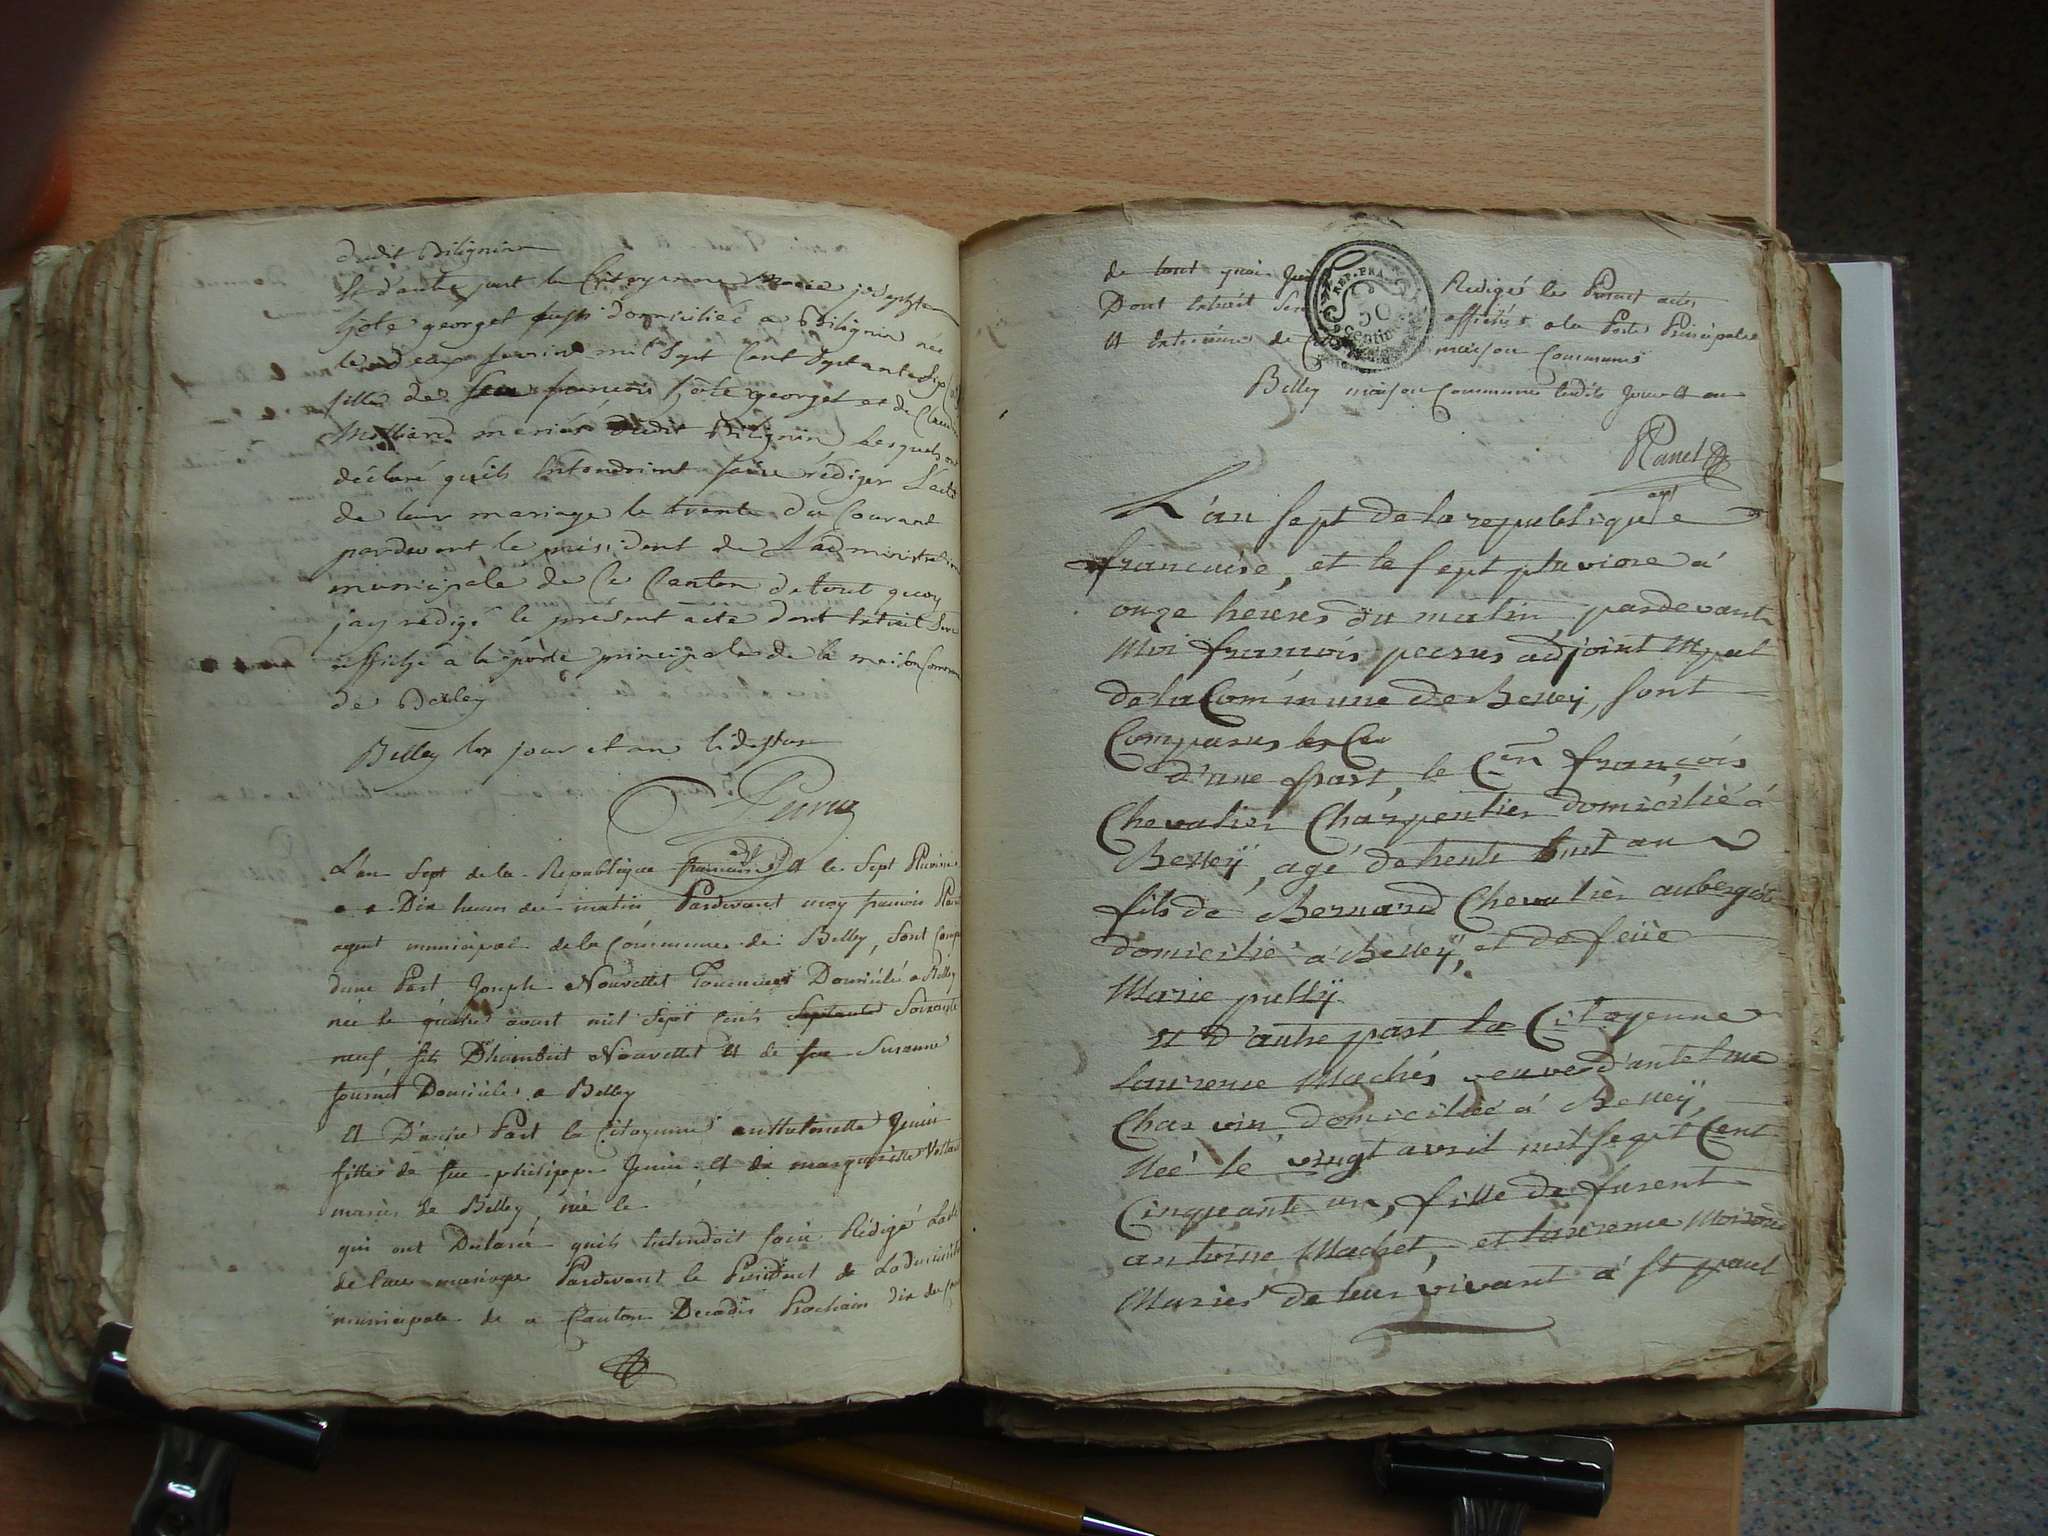 dudit Bilignin
Et d'autre part la Citoyenne Marie josephte
hôte georget domiciliée a Bilignin née
le deux mil sept Cent septante six
fille de feu françois hôte georget et de
mariés dudit Bilignin, Lesquels ont
déclaré qu'ils Entendoient faire rédiger L'acte
de leur mariage le trente du Courant
pardevant le président de L'administration
municipale de Ce Canton de tout quoy
jay rédigé le présent acte dont Extrait Sera
affiché a la porte principale de la maison Commune
de Belley
Belley les jour et an
L'an Sept de la Republique française et le Sept Pluviose
a Dix heures du matin, Pardevant moy francois
agent municipal de la Commune de Belley, sont
dune Part Joseph Nouvellet Domicilié a Belley
née le quatre aoust mil Sept Cents Septante Soixante
neuf, fils D'humbert Nouvellet et de feu Suzanne
Domiciliés a Belley
et D'autre Part la Citoyenne anthoinette Jenin
fille de feu philippe Jenin, et de marguerite
mariés de Belley, née le
qui ont Declaré quils Entendoit faire Rédigé
de leur mariage Pardevant le President de
municipale de ce Canton Decadis Prochain dix du
de tout quoi Redigé le Present acte
Dont Extrait Sera affiché a la Porte Principale
REP. FRA.
50
Centimes
et Exterieure de maison Commune
Belley maison Commune Lesdits Jour et an
L'an sept de la republique
francaise, et le sept pluviose á
onze heures du matin, pardevant
Moi françois perrus adjoint Mpal
de la Commune de Belley, sont
Comparus
d'une part, le Cen françois
Chevalier Charpentier domicilié á
Belley, agé de trente huit an
fils de Bernard Chevalier aubergiste
domicilié á Belley, et de feüe
Marie pully
et d'autre part la Citoyenne
laurence Machés veuve d'antelme
Charvin, domiciliée á Belley
Née le vingt avril mil sept Cent
Cinquante un, fille de furent
antoine Machet, et laurence
Mariés de leur vivant á St paul